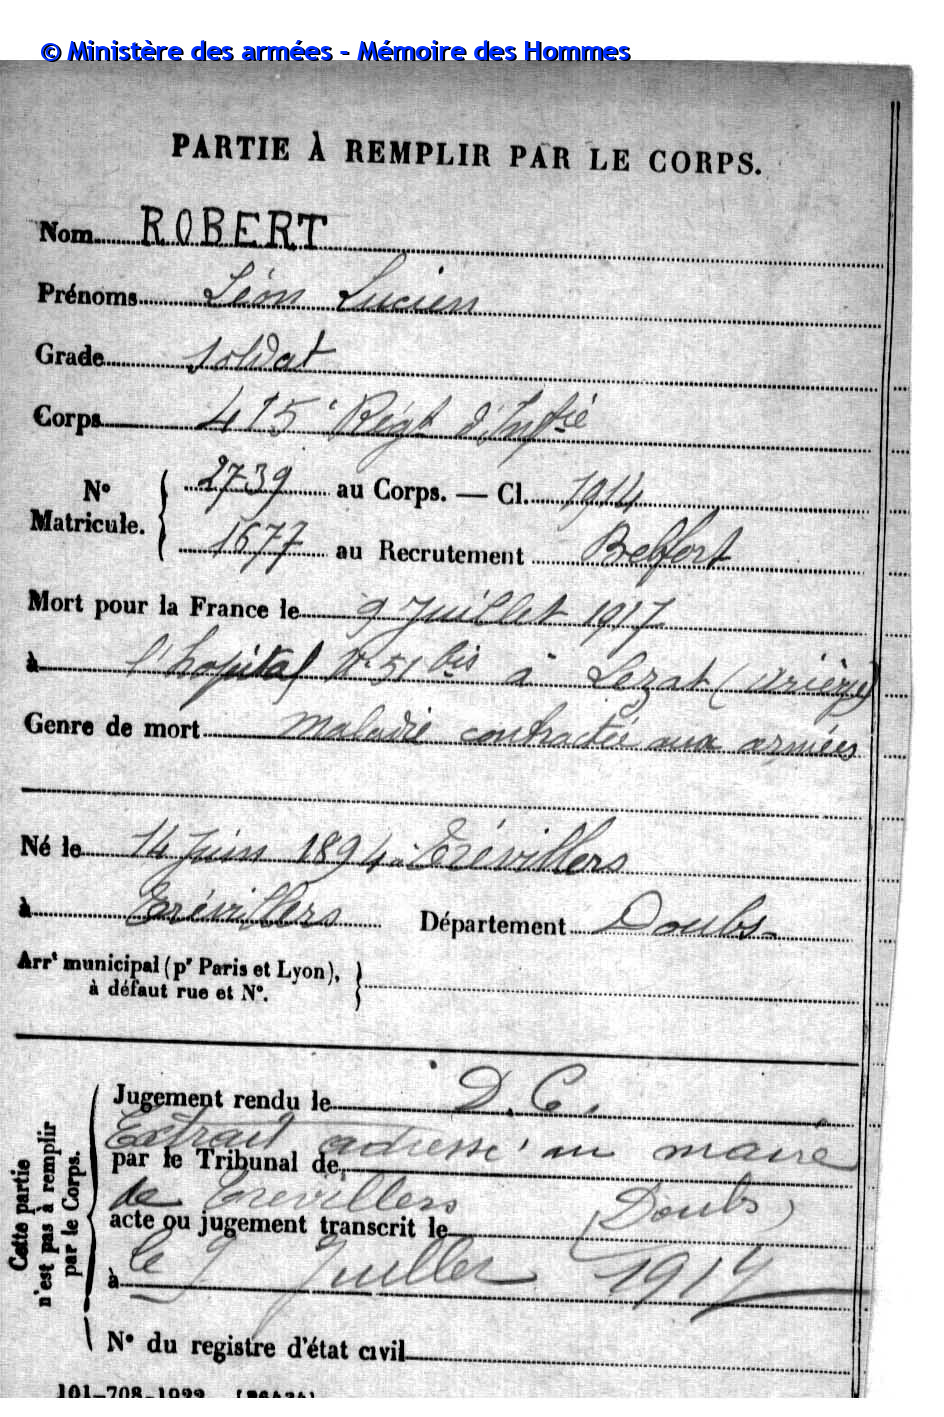 © Ministère des armées - Mémoire des Hommes
PARTIE À REMPLIR PAR LE CORPS.
Nom ROBERT
Prénoms Léon Lucien
Grade soldat
Corps 415e Régt d'Inftie
N° Matricule. { 2739 au Corps. — Cl. 1914
1677 au Recrutement Belfort
Mort pour la France le 9 Juillet 1917
à l'hopital N° 51 bis à Lezat (Ariège)
Genre de mort maladie contractée aux armées
Né le 14 Juin 1894 à Trévillers
à Trévillers Département Doubs
Arrt municipal (pr Paris et Lyon), }
à défaut rue et N°.
Cette partie n'est pas à remplir par le Corps.
Jugement rendu le D.C.
Extrait adressé au maire
par le Tribunal de
de Trévillers (Doubs)
acte ou jugement transcrit le
le 9 Juillet 1917
à
N° du registre d'état civil
101-708-1922. [26434]